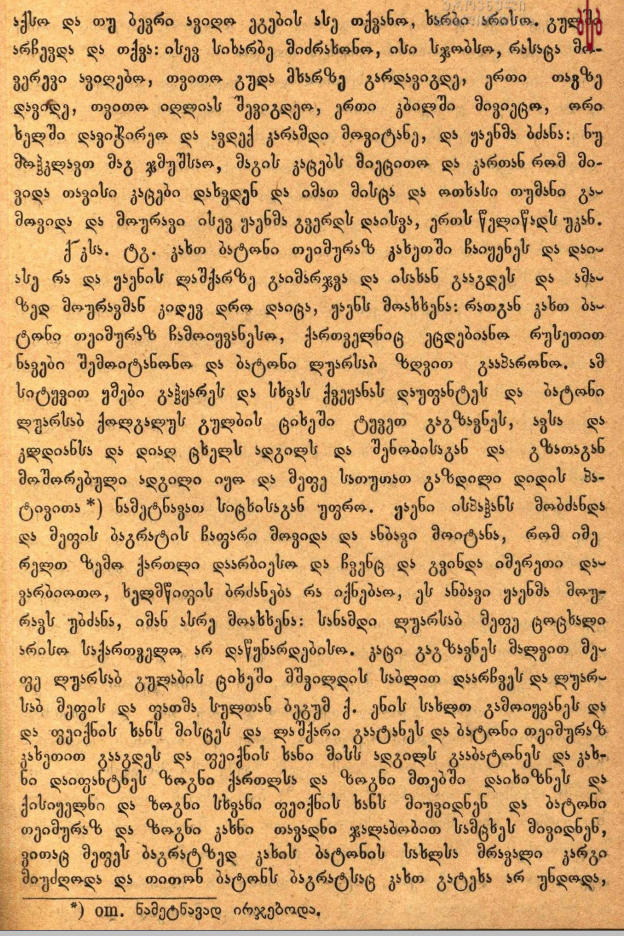 აქსო და თუ ბევრი ავიღო ეგების ასე თქვანო, ხარბი არისო. გულში
არჩევდა და თქვა: ისევ სიხარბე მიძრახონო, ისი სჯობსო, რასაცა მო-
ვერევი ავიღებო, თვითო გუდა მხარზე გარდავიგდე, ერთი თავზე
დავიდე, თვითო იღლიას შევიგდეო, ერთი კბილში მივიეცო, ორი
ხელში დავიჭირეო და ავდექ კარამდი მოვიტანე, და ყაენმა ბძანა: ნუ
მოჰკლავთ მაგ ჯმუშსაო, მაგის კაცებს მიეცითო და კართან რომ მი-
ვიდა თავისი კაცები დახვდენ და იმათ მისცა და ოთხასი თუმანი გა-
მოვიდა და მოურავი ისევ ყაენმა გვერდს დაისვა, ერთს წელიწადს უკან.
ქკსა. ტგ. კახთ ბატონი თეიმურაზ კახეთში ჩაიყენეს და დაი-
ასე რა და ყაენის ლაშქარზე გაიმარჯვა და ისახან გააგდეს და ამა-
ზედ მოურავმან კიდევ დრო დაიცა, ყაენს მოახსენა: რათგან კახთ ბა-
ტონი თეიმურაზ ჩამოიყვანესო, ქართველნიც ეცდებიანო რუსეთით
ნავები შემოიტანონო და ბატონი ლუარსაბ ზღვით გააპარონო. ამ
სიტყვით ყმები გაჰყარეს და სხვას ქვეყანას დაუფანტეს და ბატონი
ლუარსაბ ქოლგალუს გულბის ციხეში ტყვეთ გაგზავნეს, ავსა და
კლდიანსა და დიაღ ცხელს ადგილს და შენობისაგან და გზათაგან
მოშორებული ადგილი იყო და მეფე სათუთათ გაზდილი დიდის პა-
ტივითა *) ნამეტნავათ სიცხისაგან უფრო. ყაენი ისპაჰანს მობძანდა
და მეფის ბაგრატის ჩაფარი მოვიდა და ანბავი მოიტანა, რომ იმე
რელთ ზემო ქართლი დაარბიესო და ჩვენც და გვინდა იმერეთი და-
ვარბიოთო, ხელმწიფის ბრძანება რა იქნებაო, ეს ანბავი ყაენმა მოუ-
რავს უბძანა, იმან ასრე მოახსენა: სანამდი ლუარსაბ მეფე ცოცხალი
არისო საქართველო არ დაწყნარდებისო. კაცი გაგზავნეს მალვით მე-
ფე ლუარსაბ გულაბის ციხეში მშვილდის საბლით დაარჩვეს და ლუარ-
საბ მეფის და ფათმა სულთან ბეგუმ ქ. ენის სახლთ გამოიყვანეს და
და ფეიქნის ხანს მისცეს და ლაშქარი გაატანეს და ბატონი თეიმურაზ
კახეთით გააგდეს და ფეიქნის ხანი მისს ადგილს გააბატონეს და კახ-
ნი დაიფანტნეს ზოგნი ქართლსა და ზოგნი მთებში დაიხიზნეს და
ქისიყელნი და ზოგნი სხვანი ფეიქნის ხანს მიუვიდნენ და ბატონი
თეიმურაზ და ზოგნი კახნი თავადნი ჯალაბობით სამცხეს მივიდნენ,
ვითაც მეფეს ბაგრატზედ კახის ბატონის სახლსა მრავალი კარგი
მიუძღოდა და თითონ ბატონს ბაგრატსაც კახთ გატეხა არ უნდოდა,
*) om. ნამეტნავად ირჯებოდა.